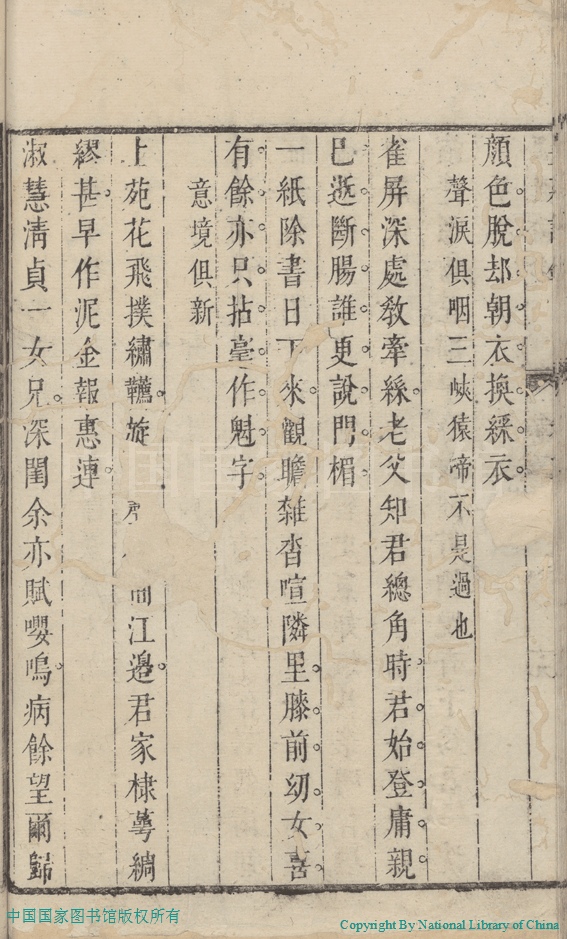 顏色脫却朝衣換綵衣
聲淚俱咽三峽猿啼不是過也
雀屏深處敎牽絲老父知君總角時君始登庸親
已逝斷腸誰更說門楣
一紙除書日下來觀瞻雜沓喧隣里膝前幼女喜
有餘亦只拈毫作魁字
意境俱新
上苑花飛撲繡韉旋江邊君家棣萼綢
繆甚早作泥金報惠連
淑慧淸貞一女兄深閨余亦賦嚶鳴病餘望爾歸
中国国家图书馆版权所有
Copyright By National Library of China